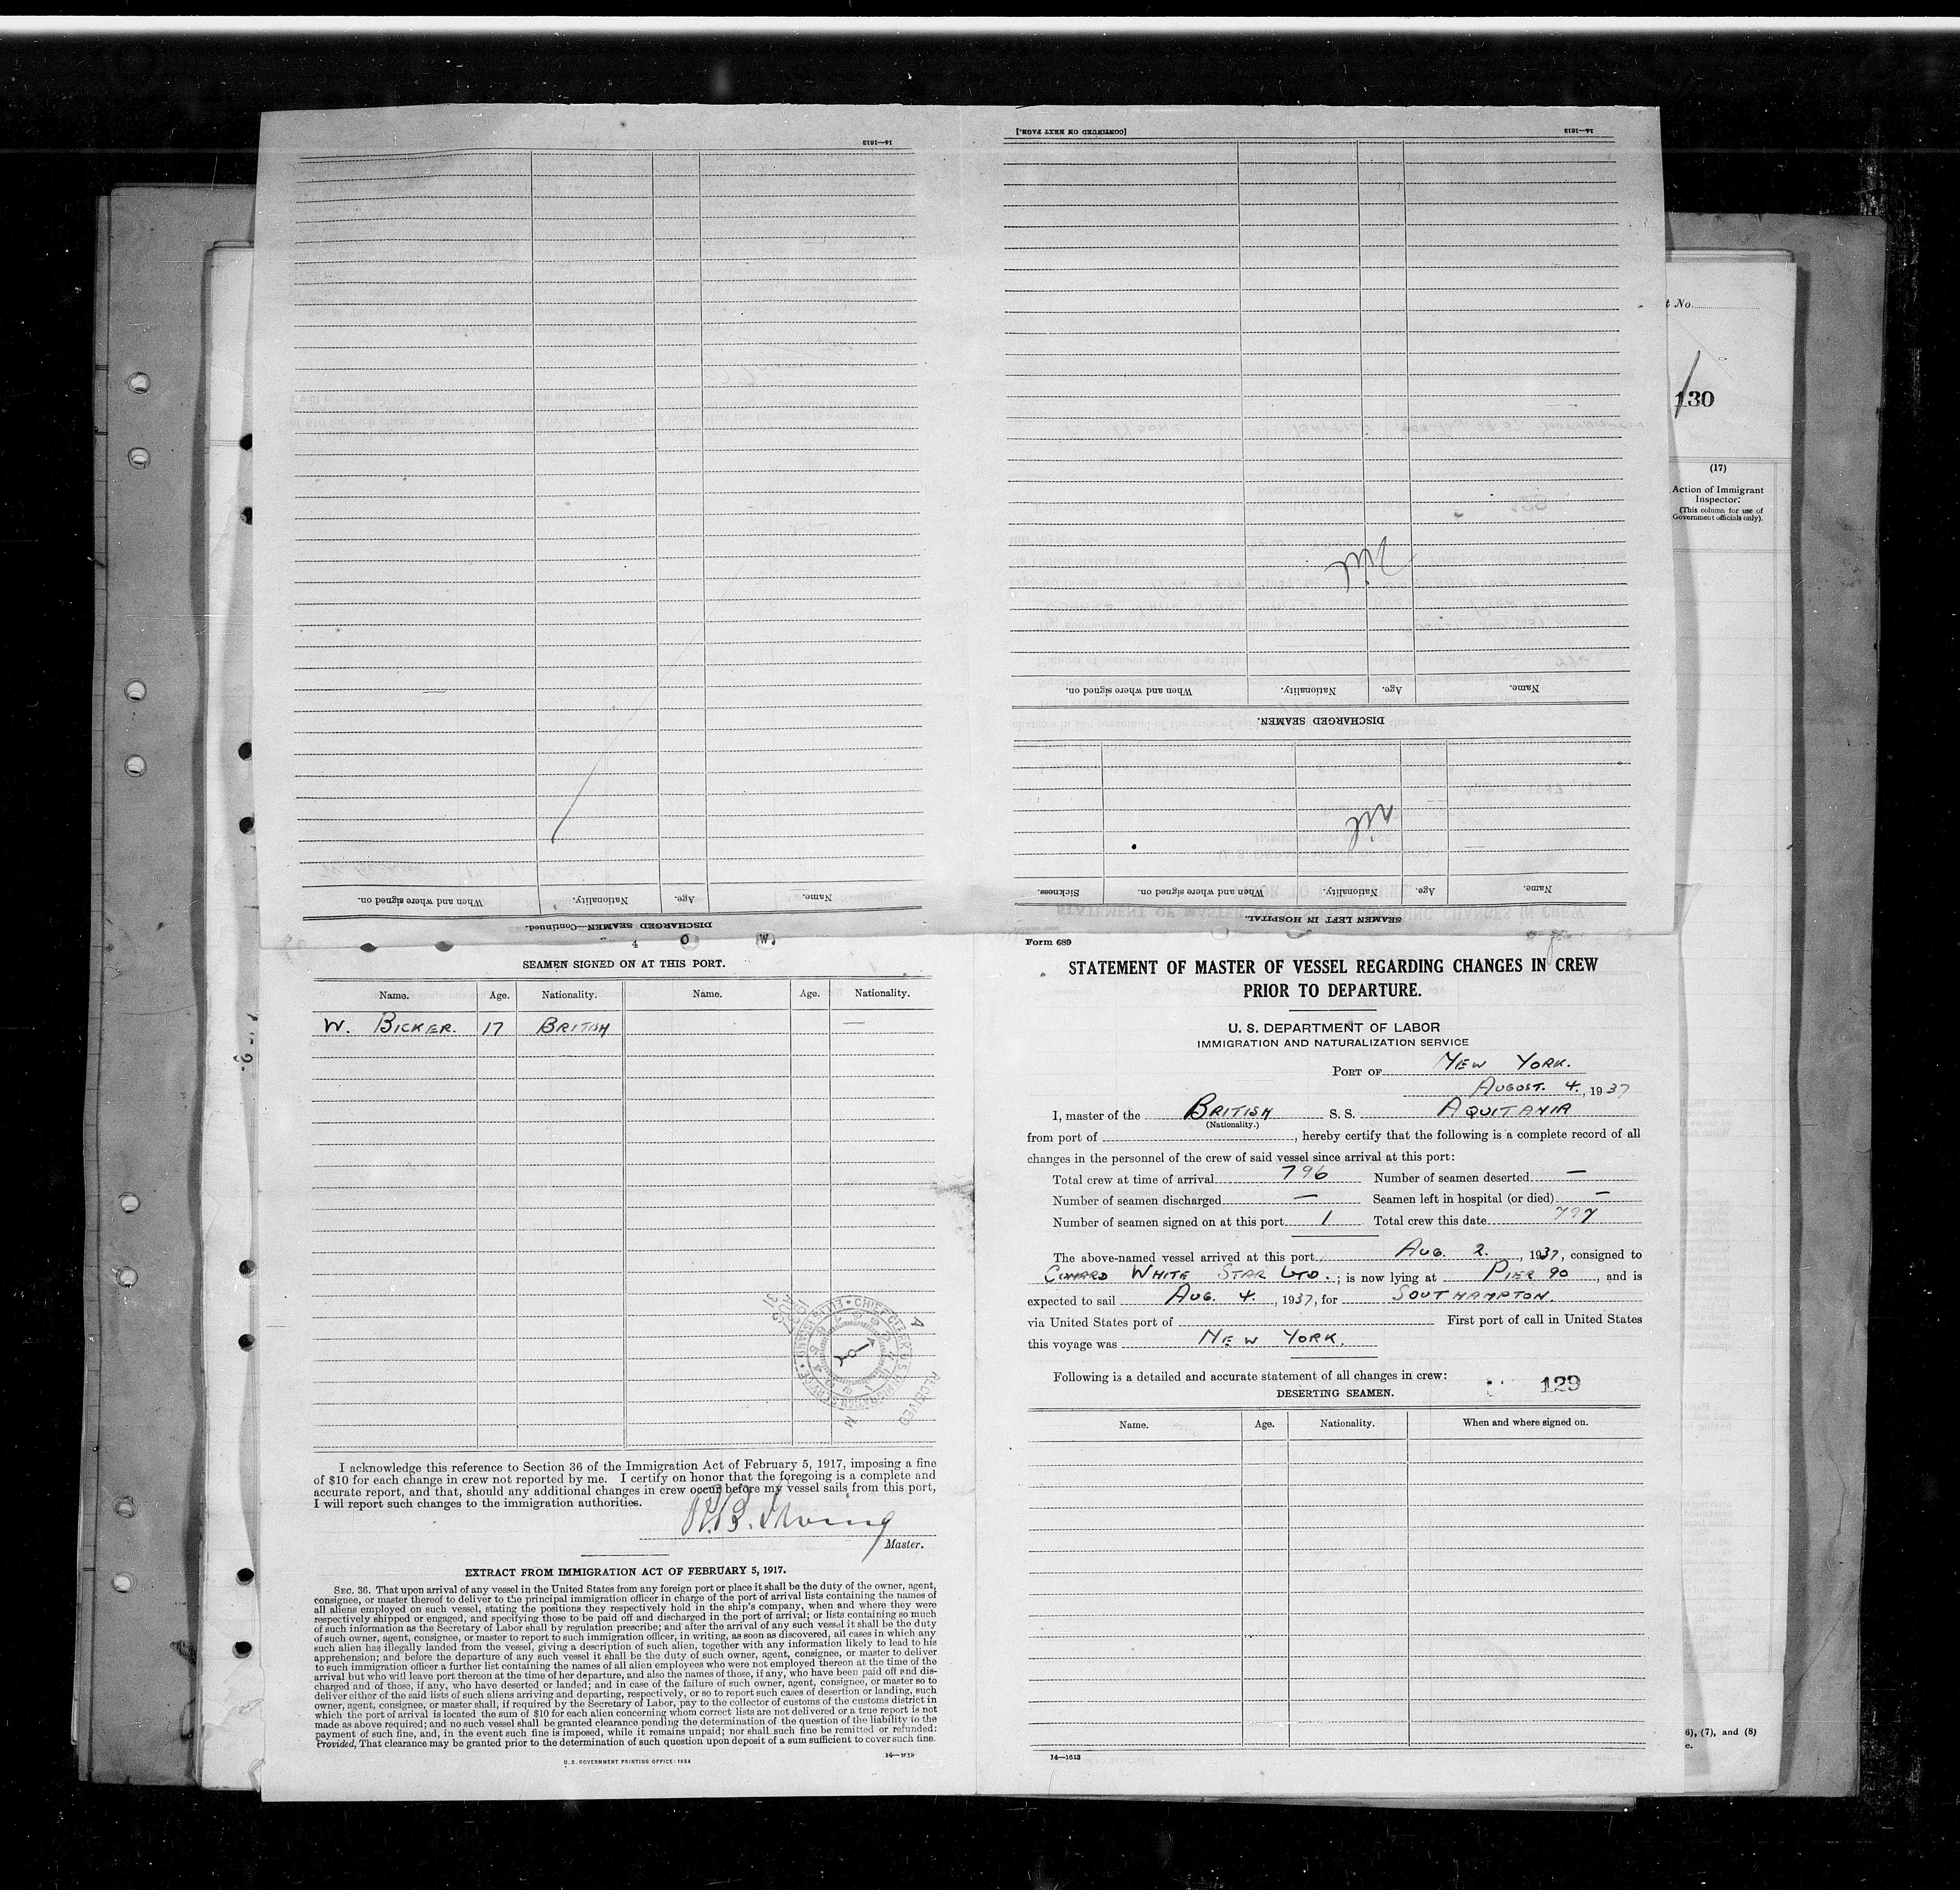 14—1613
[CONTINUED ON NEXT PAGE.]
14—1613
t No.
130
(17)
Action of Immigrant
Inspector:
(This column for use of
Government officials only).
Nil
When and where signed on. Nationality. Age. Name.
DISCHARGED SEAMEN.
Nil
Sickness. When and where signed on. Nationality. Age. Name.
SEAMEN LEFT IN HOSPITAL.
When and where signed on. Nationality. Age. Name.
DISCHARGED SEAMEN—Continued.
4 O W.
SEAMEN SIGNED ON AT THIS PORT.
Name. Age. Nationality. Name. Age. Nationality.
W. BICKER. 17 BRITISH —
I acknowledge this reference to Section 36 of the Immigration Act of February 5, 1917, imposing a fine
of $10 for each change in crew not reported by me. I certify on honor that the foregoing is a complete and
accurate report, and that, should any additional changes in crew occur before my vessel sails from this port,
I will report such changes to the immigration authorities.
R.B. Irving
Master.
EXTRACT FROM IMMIGRATION ACT OF FEBRUARY 5, 1917.
SEC. 36. That upon arrival of any vessel in the United States from any foreign port or place it shall be the duty of the owner, agent,
consignee, or master thereof to deliver to the principal immigration officer in charge of the port of arrival lists containing the names of
all aliens employed on such vessel, stating the positions they respectively hold in the ship's company, when and where they were
respectively shipped or engaged, and specifying those to be paid off and discharged in the port of arrival; or lists containing so much
of such information as the Secretary of Labor shall by regulation prescribe; and after the arrival of any such vessel it shall be the duty
of such owner, agent, consignee, or master to report to such immigration officer, in writing, as soon as discovered, all cases in which any
such alien has illegally landed from the vessel, giving a description of such alien, together with any information likely to lead to his
apprehension; and before the departure of any such vessel it shall be the duty of such owner, agent, consignee, or master to deliver
to such immigration officer a further list containing the names of all alien employees who were not employed thereon at the time of the
arrival but who will leave port thereon at the time of her departure, and also the names of those, if any, who have been paid off and dis-
charged and of those, if any, who have deserted or landed; and in case of the failure of such owner, agent, consignee, or master so to
deliver either of the said lists of such aliens arriving and departing, respectively, or so to report such cases of desertion or landing, such
owner, agent, consignee, or master shall, if required by the Secretary of Labor, pay to the collector of customs of the customs district in
which the port of arrival is located the sum of $10 for each alien concerning whom correct lists are not delivered or a true report is not
made as above required; and no such vessel shall be granted clearance pending the determination of the question of the liability to the
payment of such fine, and, in the event such fine is imposed, while it remains unpaid; nor shall such fine be remitted or refunded:
Provided, That clearance may be granted prior to the determination of such question upon deposit of a sum sufficient to cover such fine.
U.S. GOVERNMENT PRINTING OFFICE: 1934
14—1613
Form 689
STATEMENT OF MASTER OF VESSEL REGARDING CHANGES IN CREW
PRIOR TO DEPARTURE.
U. S. DEPARTMENT OF LABOR
IMMIGRATION AND NATURALIZATION SERVICE
PORT OF NEW YORK.
AUGUST. 4., 1937
I, master of the BRITISH S. S. AQUITANIA
(Nationality.)
from port of , hereby certify that the following is a complete record of all
changes in the personnel of the crew of said vessel since arrival at this port:
Total crew at time of arrival 796 Number of seamen deserted —
Number of seamen discharged — Seamen left in hospital (or died) —
Number of seamen signed on at this port 1 Total crew this date 797
The above-named vessel arrived at this port AUG. 2. , 1937, consigned to
CUNARD WHITE STAR LTD. ; is now lying at PIER 90 , and is
expected to sail AUG. 4. , 1937, for SOUTHAMPTON.
via United States port of First port of call in United States
this voyage was NEW YORK.
Following is a detailed and accurate statement of all changes in crew:
129
DESERTING SEAMEN.
Name. Age. Nationality. When and where signed on.
14—1613
6), (7), and (8)
c.